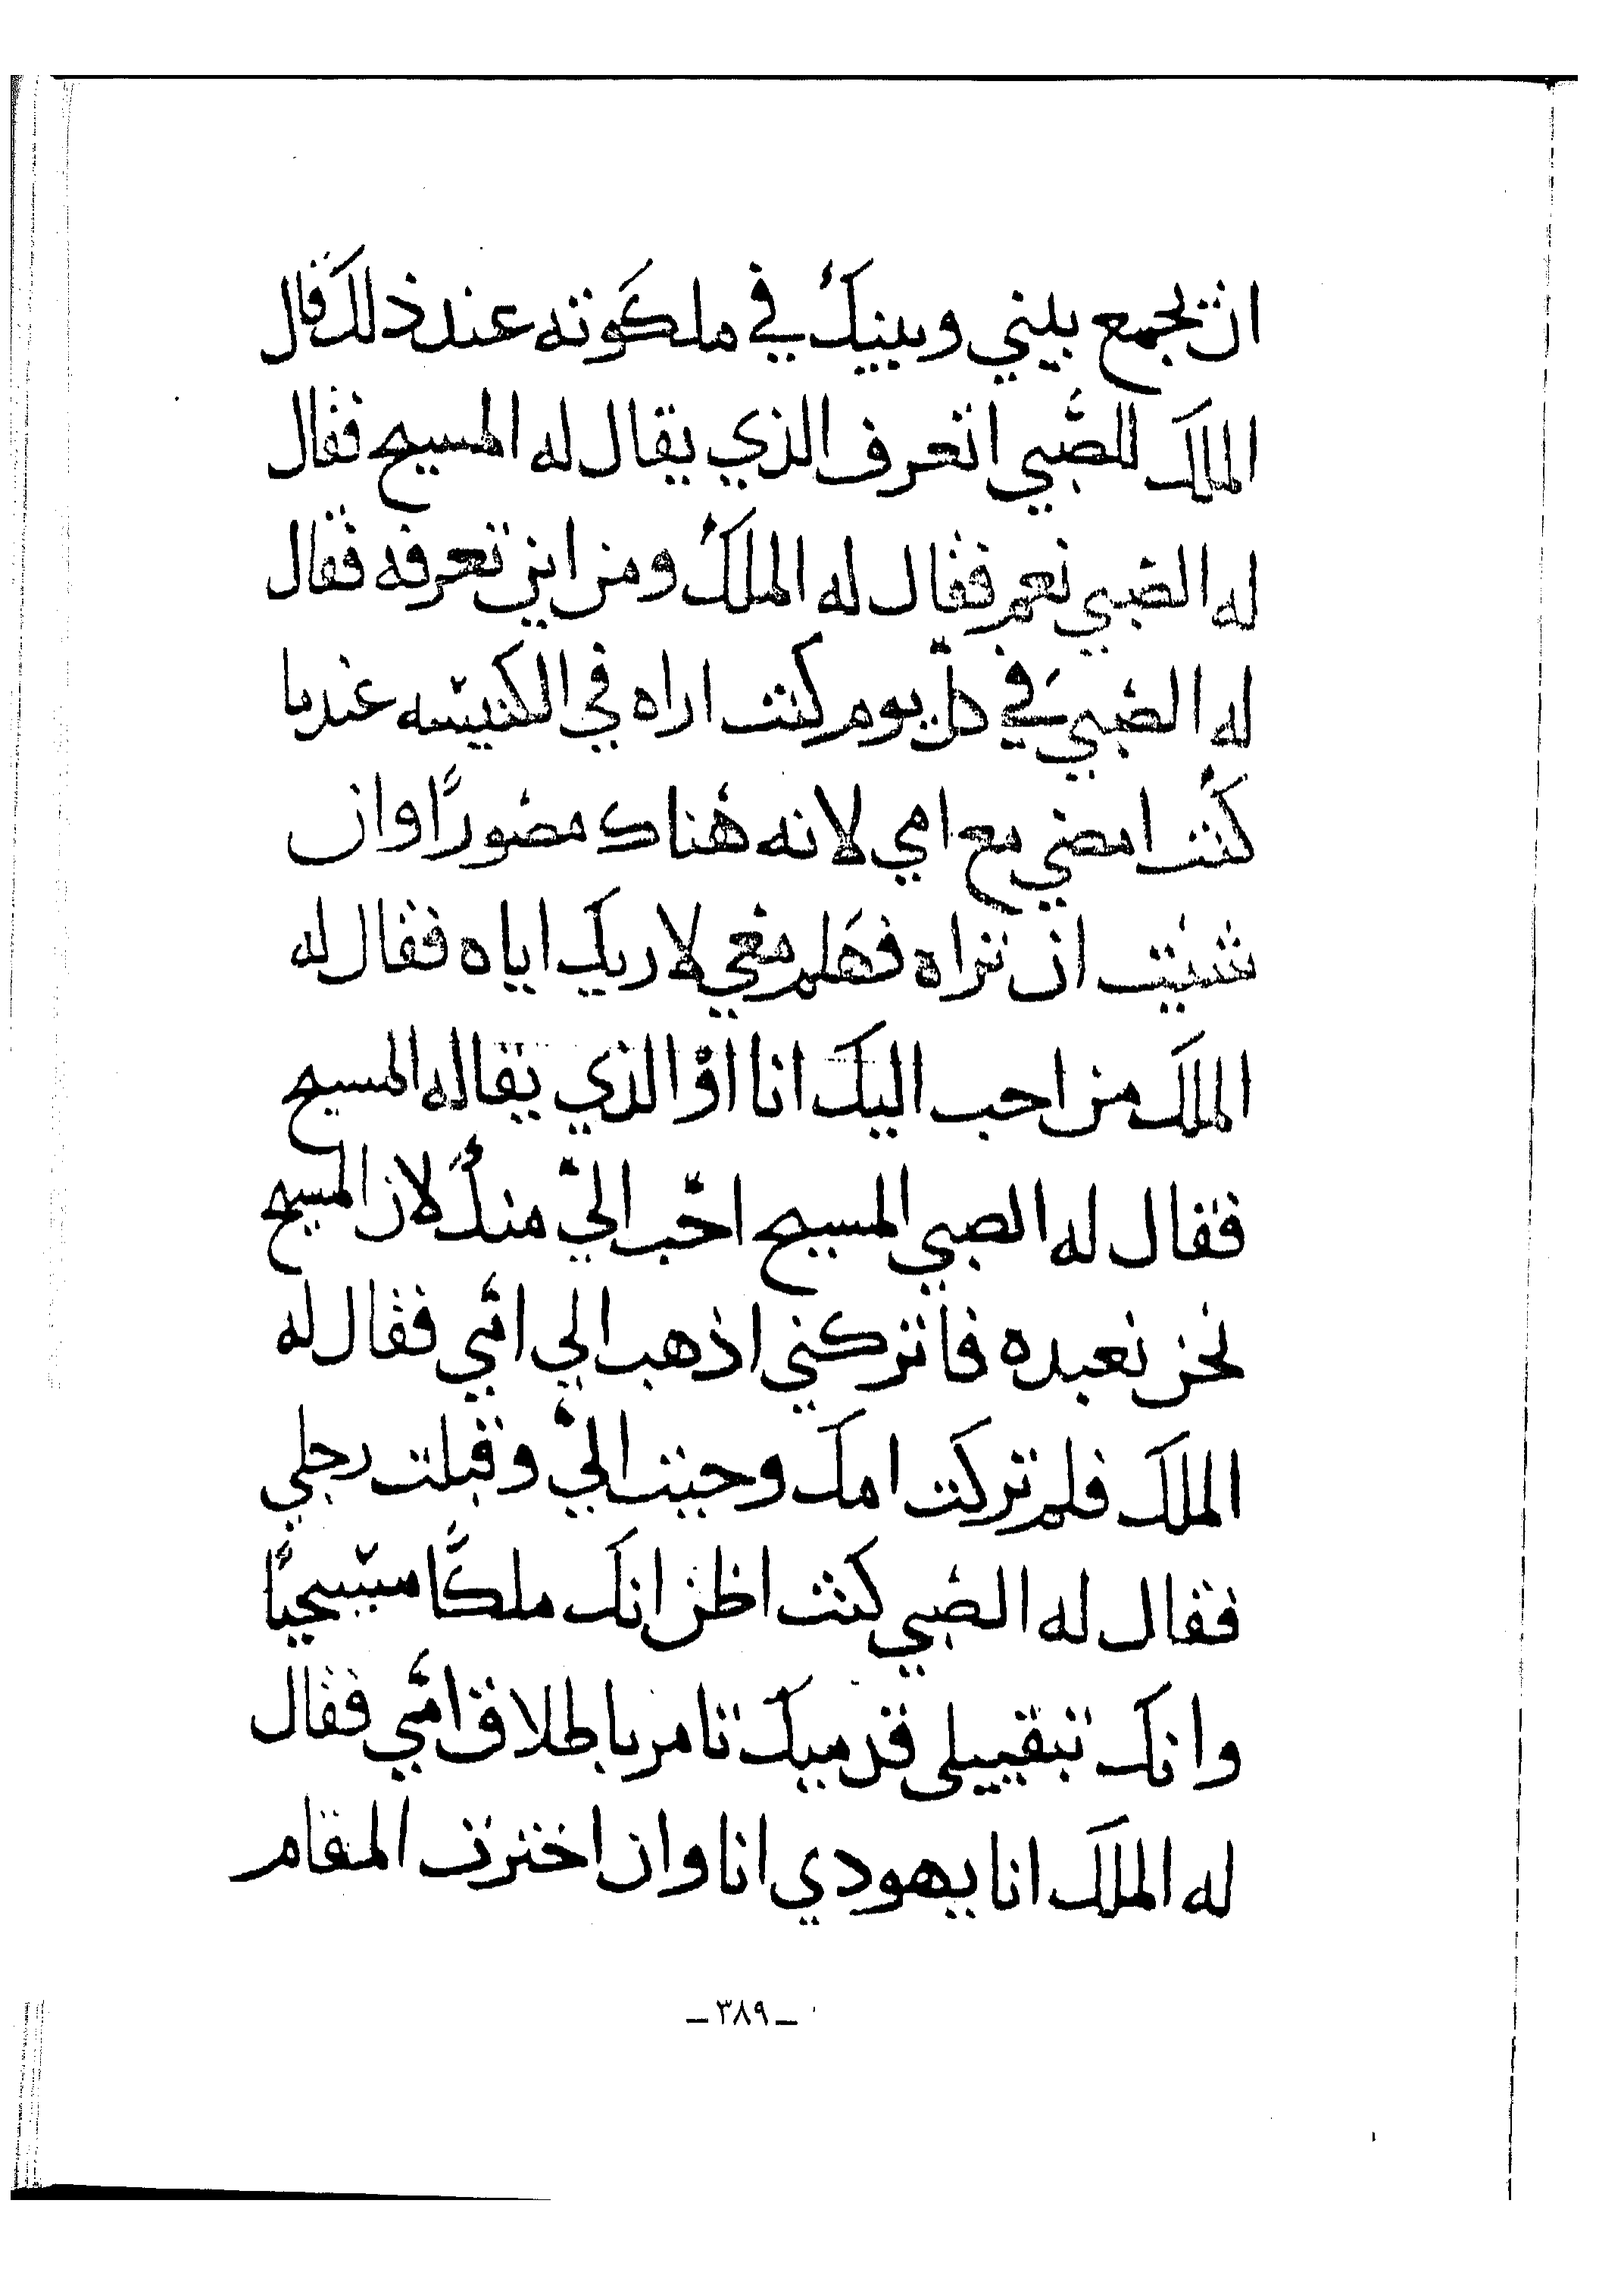 ان يجمع بيني وبينك في ملكوته عند ذلك قال
الملك للصبي اتعرف الذي يقال له المسيح فقال
له الصبي نعم فقال له الملك ومن اين تعرفه فقال
له الصبي في كل يوم كنت اراه في الكنيسه عندما
كنت امضي مع امي لانه هناك مصورًا وان
شئت ان تراه فهلم معي لاريك اياه فقال له
الملك من احب اليك انا اوْ الذي يقاله المسيح
فقال له الصبي المسيح احّب اليّ منك لان المسيح
نحن نعبده فاتركني اذهب الي امّي فقال له
الملك فلم تركت امك وجيت اليّ وقبلت رجلي
فقال له الصبي كنت اظن انك ملكًا مسيحيًا
وانك تبقبيلى قدميك تامر باطلاق امّي فقال
له الملك انا يهودي انا وان اخترت المقام
ـ ٣٨٩ ـ